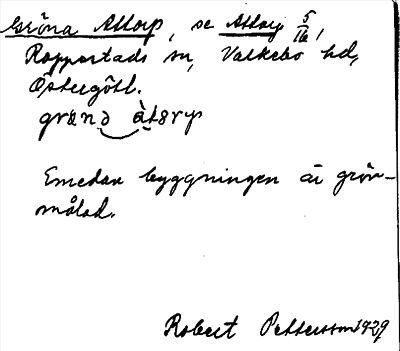 Gröna Attorp, se Attorp 5/16,
Rappestads sn, Valkebo hd,
Östergötl.
grœ̄nə àtɵrp
Emedan byggningen är grön-
målad.
Robert Pettersson 1929